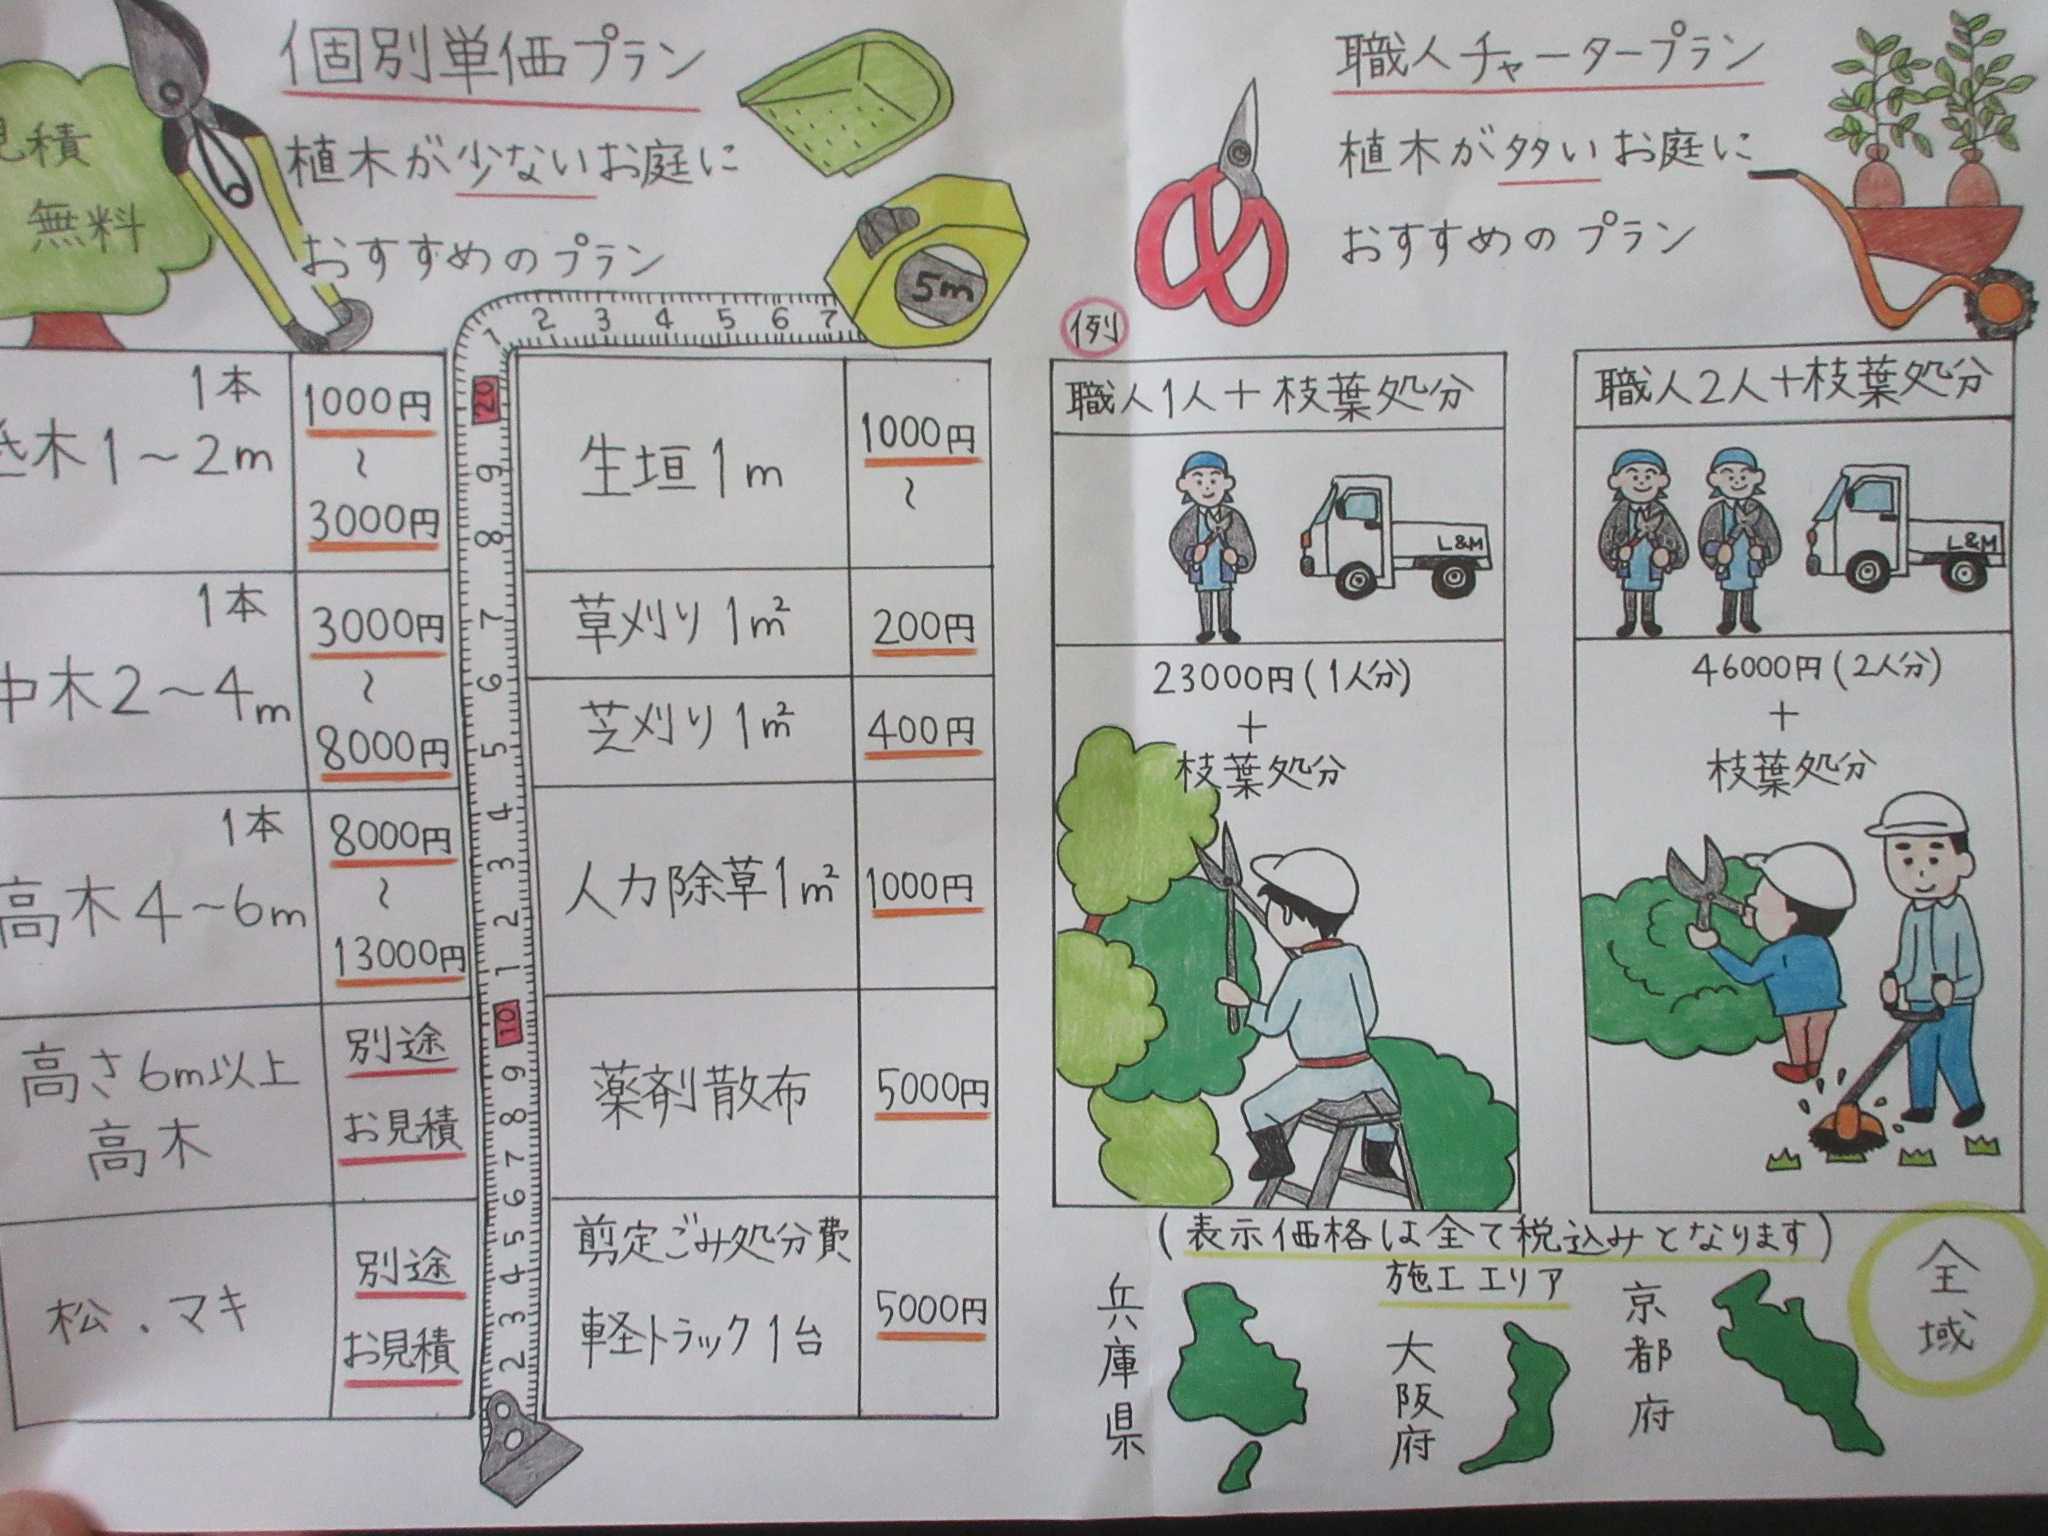 見積
無料
個別単価プラン
植木が少ないお庭に
おすすめのプラン
5m
1 2 3 4 5 6 7
1本
低木1~2m
1000円
~
3000円
1本
中木2~4m
3000円
~
8000円
1本
高木4~6m
8000円
~
13000円
高さ6m以上
高木
別途
お見積
松、マキ
別途
お見積
20
9
8
7
6
5
4
3
2
1
10
9
8
7
6
5
4
3
2
生垣1m
1000円
~
草刈り1㎡
200円
芝刈り1㎡
400円
人力除草1㎡
1000円
薬剤散布
5000円
剪定ごみ処分費
軽トラック1台
5000円
職人チャータープラン
植木が多いお庭に
おすすめのプラン
例
職人1人+枝葉処分
L&M
23000円(1人分)
+
枝葉処分
職人2人+枝葉処分
L&M
46000円(2人分)
+
枝葉処分
(表示価格は全て税込みとなります)
施工エリア
兵庫県
大阪府
京都府
全域